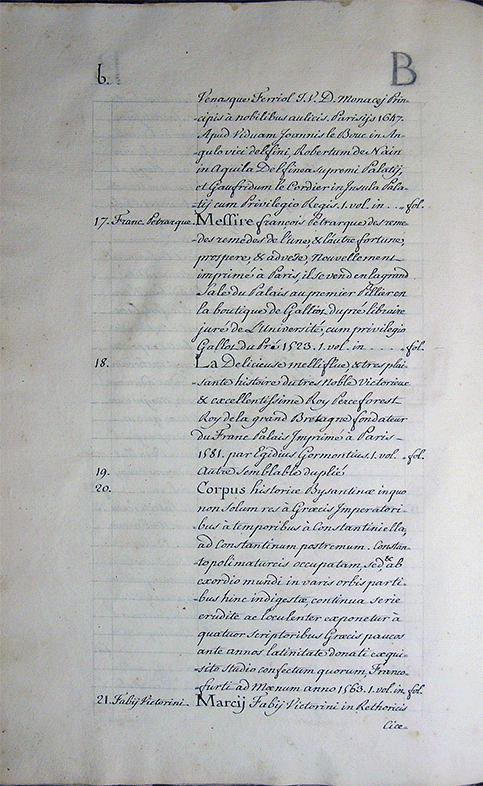 6. B
Venasque Ferriol I.V.D. Monacej Prin-
cipis à nobilibus aulicis. Parisijs 1647.
Apud Viduam Joannis le Bouc in An-
gulo vici delfini, Robertum de Nain
in Aquila Delfinea supremi Palatij,
et Gaufridum le Cordier in Jnsula Pala-
tij cum Privilegio Regis. 1. vol. in . . . fol.
17. Franc. Petrarque. Messire françois Pétrarque des reme-
des remedes de l'une, & l'autre fortune,
prospere, & advese, Nouvellement
imprimé à Paris, il se vend en la grand
Sale du Palais au premier Pillier en
la boutique de Galliot, dupré libraire
juré de L'université, cum privilegio
Galliot du Pré 1523. 1. vol. in . . . . fol.
18. La Delicieuse melliflue, & tres plai-
sante histoire du tres Noble Victorieux
& excellentissime Roy Perceforest
Roy de la grand Bretagne fondateur
du Franc Palais Jmprimé à Paris
1581. par Egidius Gormontius. 1. vol. fol.
19. Autre semblable duplié
20. Corpus historiæ Bysantinæ in quo
non solum res à Græcis Jmperatori-
bus à temporibus à Constantini ella,
ad Constantinum postremum. Constan-
topoli na turcis occupatam, sed & ab
exordio mundi in varis orbis parti-
bus hinc indigestæ, continua serie
erudite ac loculenter exponetur à
quatuor scriptoribus Græcis paucos
ante annos latinitate donati exqui-
sito studio confectum quorum, Franco-
furti ad Moenum anno 1563. 1. vol. in fol.
21. Fabij Victorini. Marcij Fabij Victorini in Rethoricis
Cice-